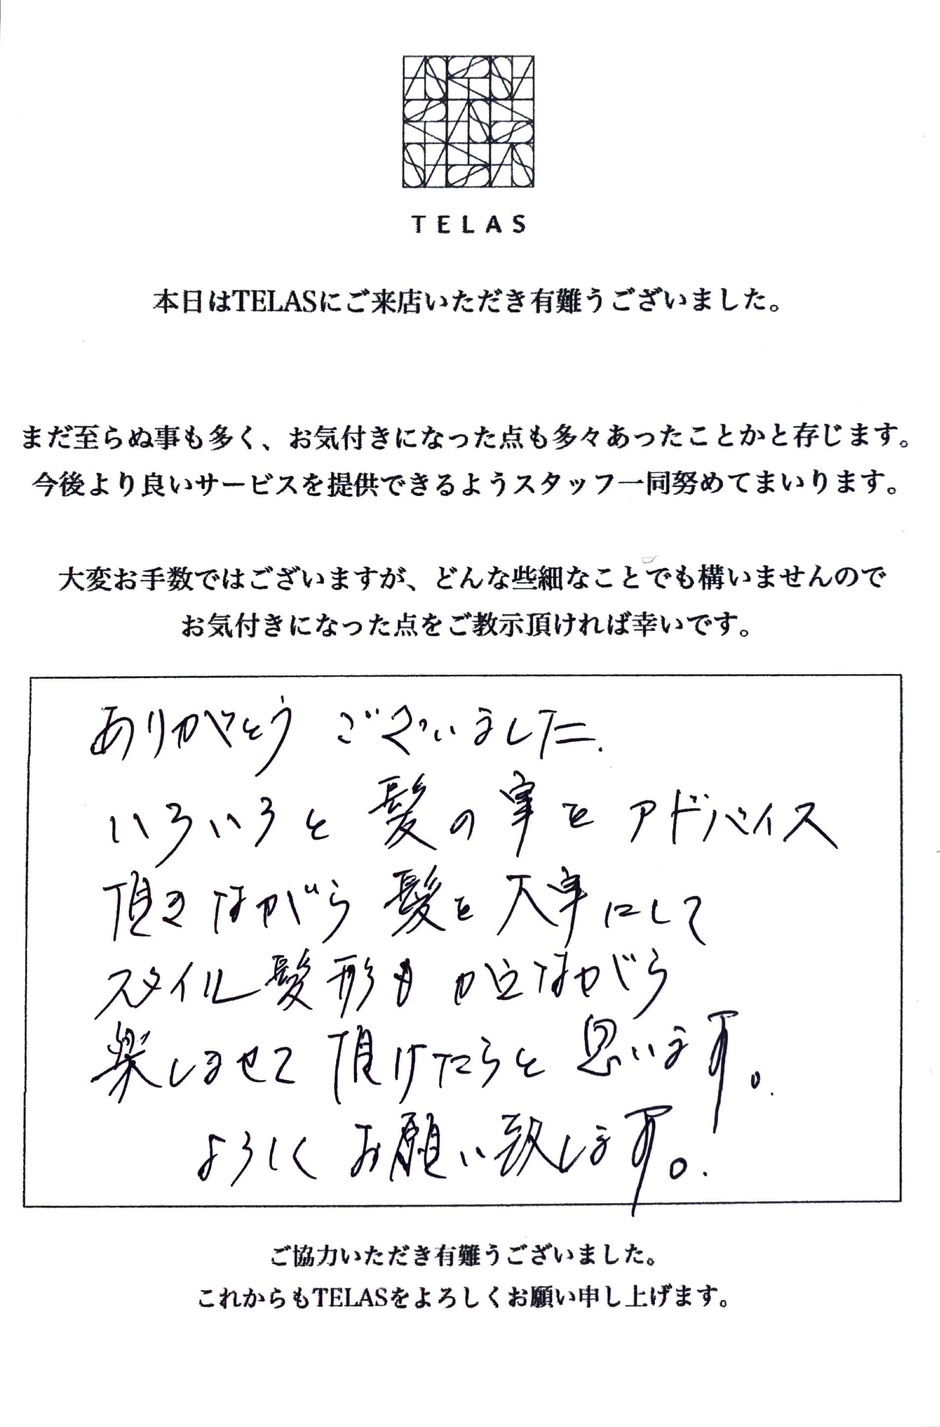 TELAS
本日はTELASにご来店いただき有難うございました。
まだ至らぬ事も多く、お気付きになった点も多々あったことかと存じます。
今後より良いサービスを提供できるようスタッフ一同努めてまいります。
大変お手数ではございますが、どんな些細なことでも構いませんので
お気付きになった点をご教示頂ければ幸いです。
ありがとう ございました.
いろいろと髪の事を アドバイス
頂きながら髪を大事にして
スタイル髪形も ながら
楽しませて頂けたらと思います。
よろしくお願い致します。
ご協力いただき有難うございました。
これからもTELASをよろしくお願い申し上げます。